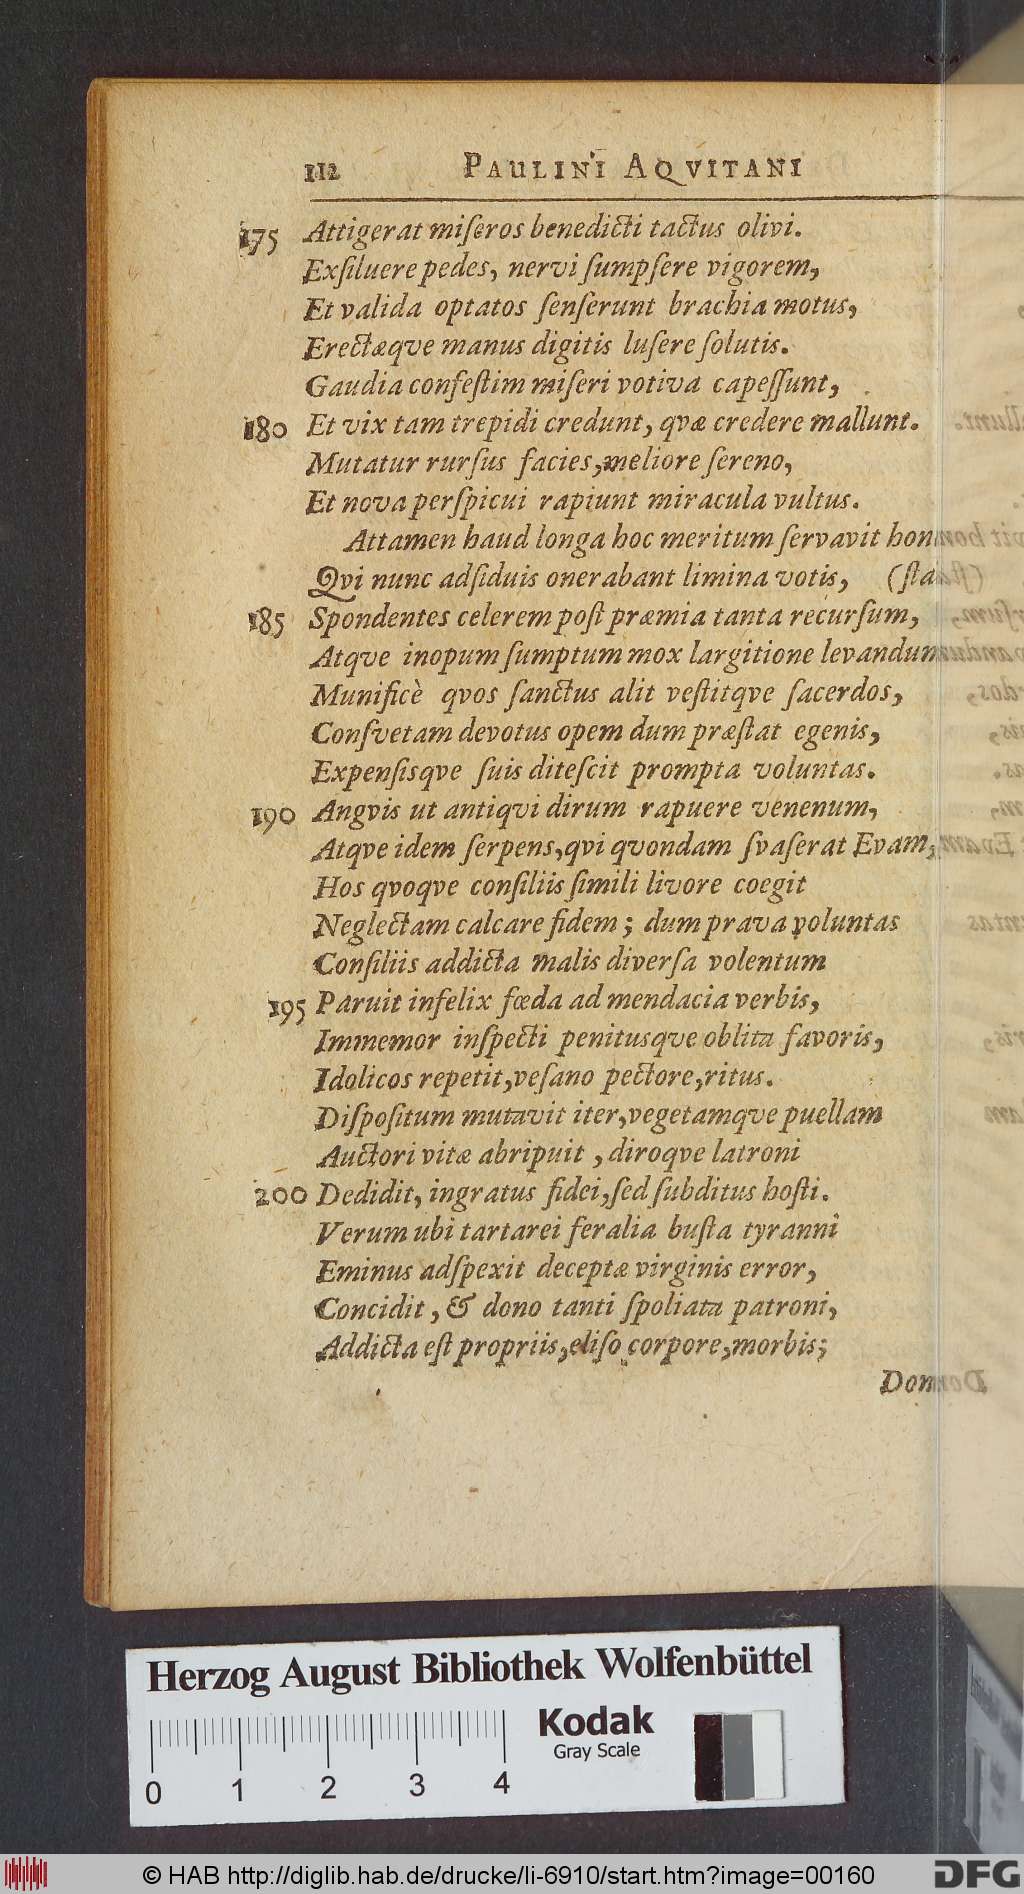 112 PAULINI AQVITANI
175 Attigerat miſeros benedicti tactus olivi.
Exſiluere pedes, nervi ſumpſere vigorem,
Et valida optatos ſenſerunt brachia motus,
Erectæqve manus digitis luſere ſolutis.
Gaudia confeſtim miſeri votiva capeſſunt,
180 Et vix tam trepidi credunt, qvæ credere mallunt.
Mutatur rurſus facies, meliore ſereno,
Et nova perſpicui rapiunt miracula vultus.
Attamen haud longa hoc meritum ſervavit
Qvi nunc adſiduis onerabant limina votis,
185 Spondentes celerem poſt præmia tanta recurſum,
Atqve inopum ſumptum mox largitione levandum
Munificè qvos ſanctus alit veſtitqve ſacerdos,
Conſvetam devotus opem dum præſtat egenis,
Expenſisqve ſuis diteſcit prompta voluntas.
190 Angvis ut antiqvi dirum rapuere venenum,
Atqve idem ſerpens, qvi qvondam ſvaſerat Evam,
Hos qvoqve conſiliis ſimili livore coegit
Neglectam calcare fidem; dum prava voluntas
Conſiliis addicta malis diverſa volentum
195 Paruit infelix fœda ad mendacia verbis,
Immemor inſpecti penitusqve oblita favoris,
Idolicos repetit, veſano pectore, ritus.
Diſpoſitum mutavit iter, vegetamqve puellam
Auctori vitæ abripuit, diroqve latroni
200 Dedidit, ingratus fidei, ſed ſubditus hoſti.
Verum ubi tartarei feralia buſta tyranni
Eminus adſpexit deceptæ virginis error,
Concidit, & dono tanti ſpoliata patroni,
Addicta eſt propriis, eliſo corpore, morbis;
Herzog August Bibliothek Wolfenbüttel
Kodak
Gray Scale
0 1 2 3 4
© HAB http://diglib.hab.de/drucke/li-6910/start.htm?image=00160
DFG